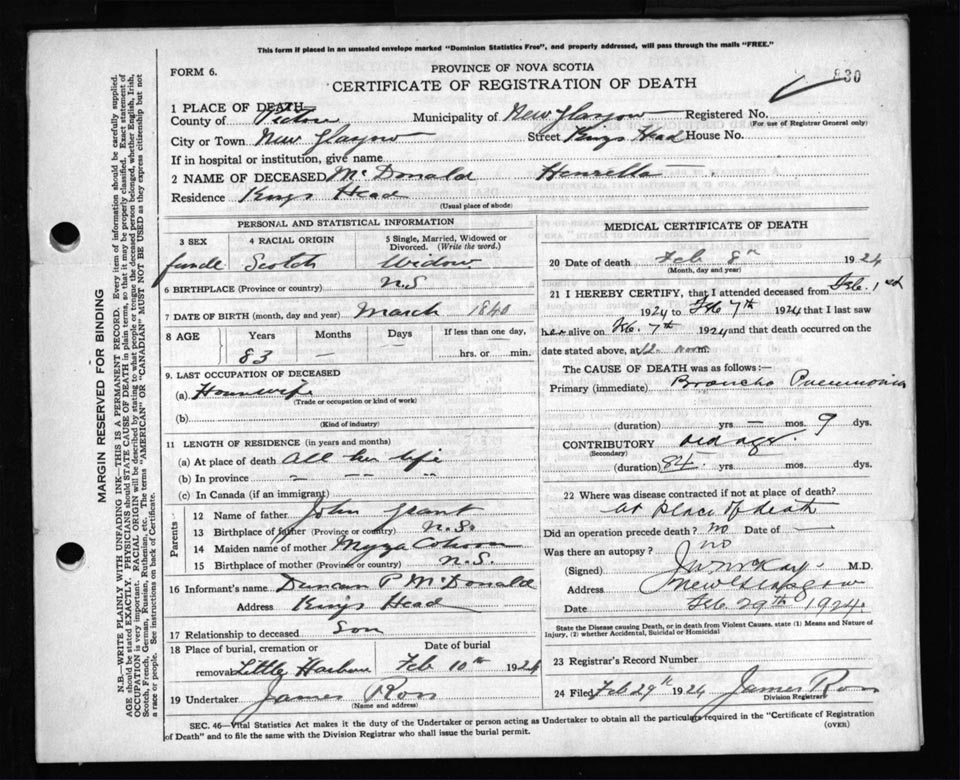 This form if placed in an unsealed envelope marked "Dominion Statistics Free", and properly addressed, will pass through the mails "FREE."
FORM 6.
PROVINCE OF NOVA SCOTIA
CERTIFICATE OF REGISTRATION OF DEATH
830
1 PLACE OF DEATH
County of Pictou Municipality of New Glasgow Registered No.
(For use of Registrar General only)
City or Town New Glasgow Street Kings Head House No.
If in hospital or institution, give name
2 NAME OF DECEASED McDonald Henrietta
Residence Kings Head
(Usual place of abode)
PERSONAL AND STATISTICAL INFORMATION
3 SEX 4 RACIAL ORIGIN 5 Single, Married, Widowed or Divorced. (Write the word.)
female Scotch Widow
6 BIRTHPLACE (Province or country) N.S
7 DATE OF BIRTH (month, day and year) March 1840
8 AGE Years Months Days If less than one day,
83 — hrs. or min.
9. LAST OCCUPATION OF DECEASED
(a) Housewife
(Trade or occupation or kind of work)
(b)
(Kind of industry)
11 LENGTH OF RESIDENCE (in years and months)
(a) At place of death all her life
(b) In province — — —
(c) In Canada (if an immigrant)
Parents
12 Name of father John Grant
13 Birthplace of father (Province or country) N.S.
14 Maiden name of mother Myza
15 Birthplace of mother (Province or country) N.S.
16 Informant's name Duncan P McDonald
Address Kings Head
17 Relationship to deceased Son
18 Place of burial, cremation or removal Little Harbour
Date of burial Feb 10th 1924
19 Undertaker James Ross
(Name and address)
MEDICAL CERTIFICATE OF DEATH
20 Date of death Feb 8th 1924
(Month, day and year)
21 I HEREBY CERTIFY, that I attended deceased from Feb. 1st
1924 to Feb 7th 1924 that I last saw
her alive on Feb. 7th 1924 and that death occurred on
date stated above, at 12 noon.
The CAUSE OF DEATH was as follows:—
Primary (immediate) Broncho Pneumonia
(duration) yrs — mos. 9 dys.
CONTRIBUTORY old age.
(Secondary)
(duration) 84 yrs. mos. dys.
22 Where was disease contracted if not at place of death?
at place of death
Did an operation precede death? no Date of —
Was there an autopsy? no
(Signed) J W McKay M.D.
Address New Glasgow
Date Feb. 29th 1924.
State the Disease causing Death, or in death from Violent Causes, state (1) Means and Nature of Injury, (2) whether Accidental, Suicidal or Homicidal
23 Registrar's Record Number
24 Filed Feb 29th 1924 James Ross
Division Registrar
SEC. 46—Vital Statistics Act makes it the duty of the Undertaker or person acting as Undertaker to obtain all the particulars required in the "Certificate of Registration
of Death" and to file the same with the Division Registrar who shall issue the burial permit.
(OVER)
MARGIN RESERVED FOR BINDING
N.B.—WRITE PLAINLY WITH UNFADING INK—THIS IS A PERMANENT RECORD. Every item of information should be carefully supplied.
AGE should be stated EXACTLY. PHYSICIANS should STATE CAUSE OF DEATH in plain terms, so that it may be properly classified. Exact statement of
OCCUPATION is very important. RACIAL ORIGIN will be described by stating to what people or tongue the deceased person belonged, whether English, Irish,
Scotch, French, German, Russian, Ruthenian, etc. The terms "AMERICAN" OR "CANADIAN" MUST NOT BE USED as they express citizenship but not
a race or people. See instructions on back of Certificate.